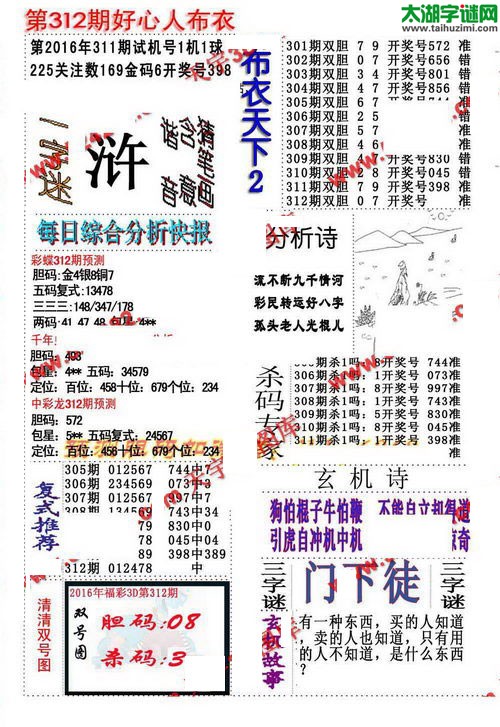 第312期好心人布衣
太湖字谜网
www.taihuzimi.com
第2016年311期试机号1机1球
225关注数169金码6开奖号398
布衣天下2
301期双胆 7 9 开奖号572 准
302期双胆 0 7 开奖号656 错
303期双胆 3 4 开奖号801 错
304期双胆 4 7 开奖号856 错
305期双胆 6 7
306期双胆 2 5
307期双胆 6 7
308期双胆 4 6
309期双胆 开奖号830 错
310期双胆 2 8 开奖号045 错
311期双胆 7 9 开奖号398 准
312期双胆 0 7 开奖号 准
浒
每日综合分析快报
彩蝶312期预测
胆码:金4银8铜7
五码复式:13478
三三三:148/347/178
两码·41 47 48 包星·4**
千年!
胆码: 493
包星: 4** 五码: 34579
定位: 百位: 458十位: 679个位: 234
中彩龙312期预测
胆码: 572
包星: 5** 五码复式: 24567
定位: 百位: 456十位: 679个位: 234
分析诗
流不断九千情河
彩民转运好八字
孤头老人光棍儿
杀码专家
305期杀1吗: 8开奖号 744准
306期杀1吗: 0开奖号 073准
307期杀1吗: 3开奖号 997准
308期杀1吗: 1开奖号 743准
309期杀1吗: 5开奖号 830准
310期杀1吗: 8开奖号 045准
311期杀1吗: 1开奖号 398准
复式推荐
305期 012567 744中7
307期 012567
308期 134569 743中34
79 830中0
78 045中04
89 398中389
312期 012478 中
玄机诗
狗怕棍子牛怕鞭 不能自立相得道
引虎自冲机中机 惊奇
三字谜
门下徒
三字谜
清清双号图
2016年福彩3D第312期
双号图
胆码:08
杀码:3
玄机故事
有一种东西,买的人知道
,卖的人也知道,只有用
的人不知道,是什么东西
?